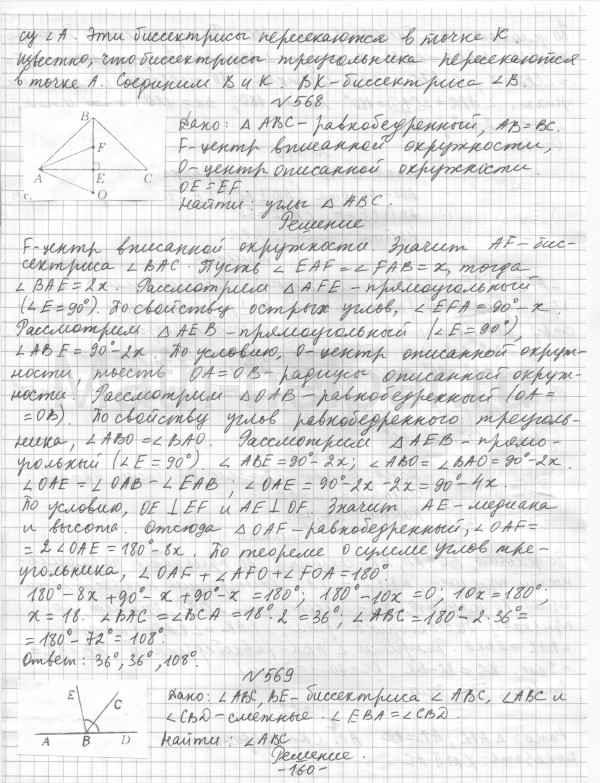 су ∠A. Эти биссектрисы пересекаются в точке K.
известно, что биссектрисы треугольника пересекаются
в точке A. Соединим B и K. BK-биссектриса ∠B.
№568
B
F
A
E
C
O
г.
Дано: △ABC-равнобедренный, AB=BC.
F-центр вписанной окружности,
O-центр описанной окружности.
OE=EF.
Найти: углы △ABC.
Решение
F-центр вписанной окружности. Значит AF-бис-
сектриса ∠BAC. Пусть ∠EAF=∠FAB=x, тогда
∠BAE=2x. Рассмотрим △AFE-прямоугольный
(∠E=90°). По свойству острых углов, ∠EFA=90°-x.
Рассмотрим △AEB-прямоугольный (∠E=90°),
∠ABE=90°-2x. По условию, O-центр описанной окруж-
ности, тоесть OA=OB-радиусы описанной окруж-
ности. Рассмотрим △OAB-равнобедренный (OA=
=OB). По свойству углов равнобедренного треуголь-
ника, ∠ABO=∠BAO. Рассмотрим △AEB-прямо-
угольный (∠E=90°). ∠ABE=90°-2x; ∠ABO=∠BAO=90°-2x.
∠OAE=∠OAB-∠EAB; ∠OAE=90°-2x-2x=90°-4x.
По условию, OE⊥EF и AE⊥OF. Значит AE-медиана
и высота. Отсюда △OAF-равнобедренный, ∠OAF=
=2∠OAE=180°-8x. По теореме о сумме углов тре-
угольника, ∠OAF+∠AFO+∠FOA=180°.
180°-8x+90°-x+90°-x=180°; 180°-10x=0; 10x=180°;
x=18. ∠BAC=∠BCA=18°·2=36°; ∠ABC=180°-2·36°=
=180°-72°=108°.
Ответ: 36°, 36°, 108°.
№569
E
C
A
B
D
Дано: ∠ABC, BE-биссектриса ∠ABC, ∠ABC и
∠CBD-смежные. ∠EBA=∠CBD.
Найти: ∠ABC
Решение.
-160-